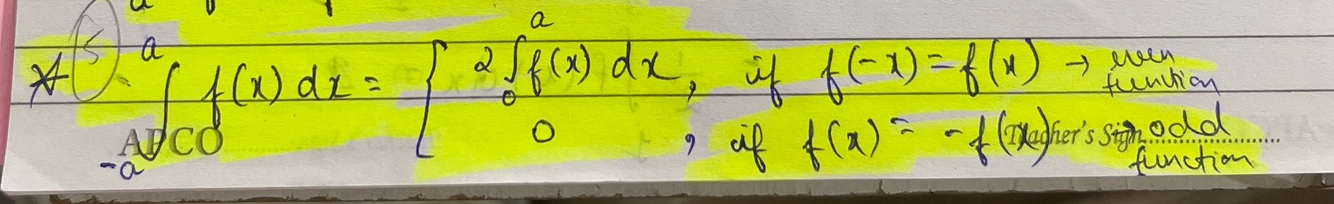 * 5. ∫_{-a}^{a} f(x) dx = { 2∫_{0}^{a} f(x) dx, if f(-x) = f(x) → even function
0 , if f(x) = -f(x) → odd function
APCO Teacher's Sign..............